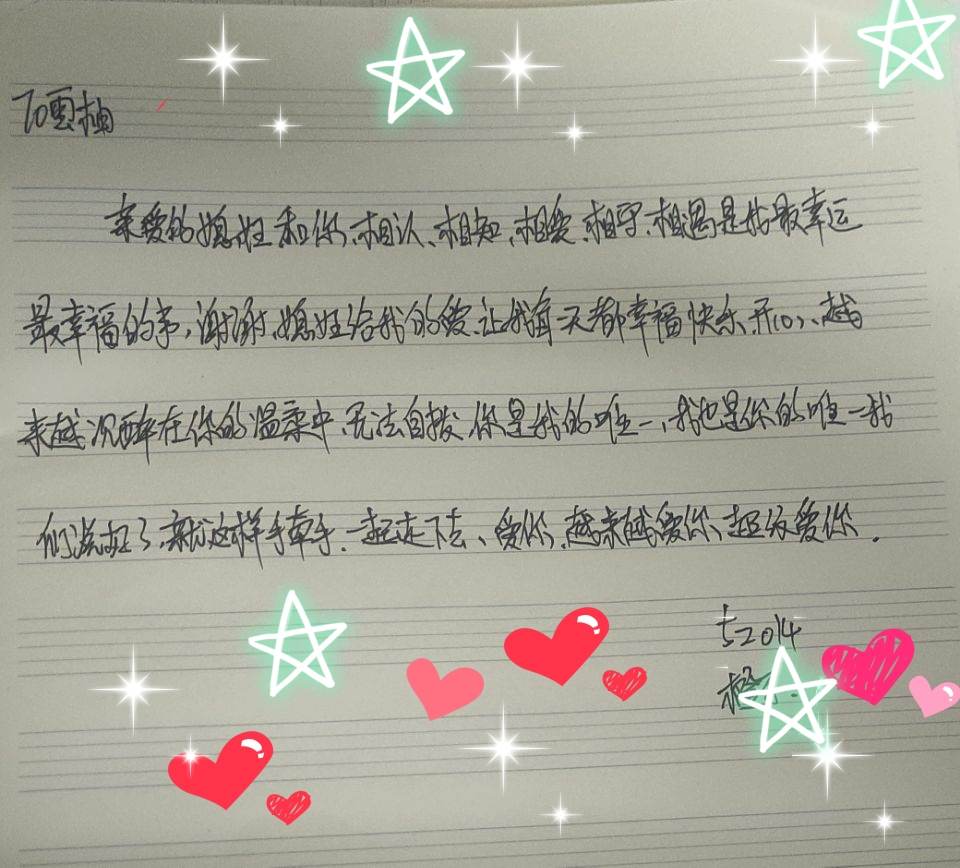 To 雲柚
亲爱的媳妇和你、相认、相知、相爱、相守、相遇是我最幸运
最幸福的事,谢谢媳妇给我的爱让我每天都幸福快乐开心、越
来越沉醉在你的温柔中、无法自拨、你是我的唯一,我也是你的唯一我
们说好了,就这样手牵手、一起走下去、爱你、越来越爱你、超级爱你.
52014